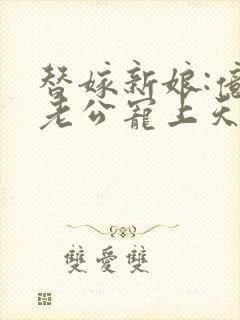 替嫁新娘:億
老公寵上天
雙愛雙